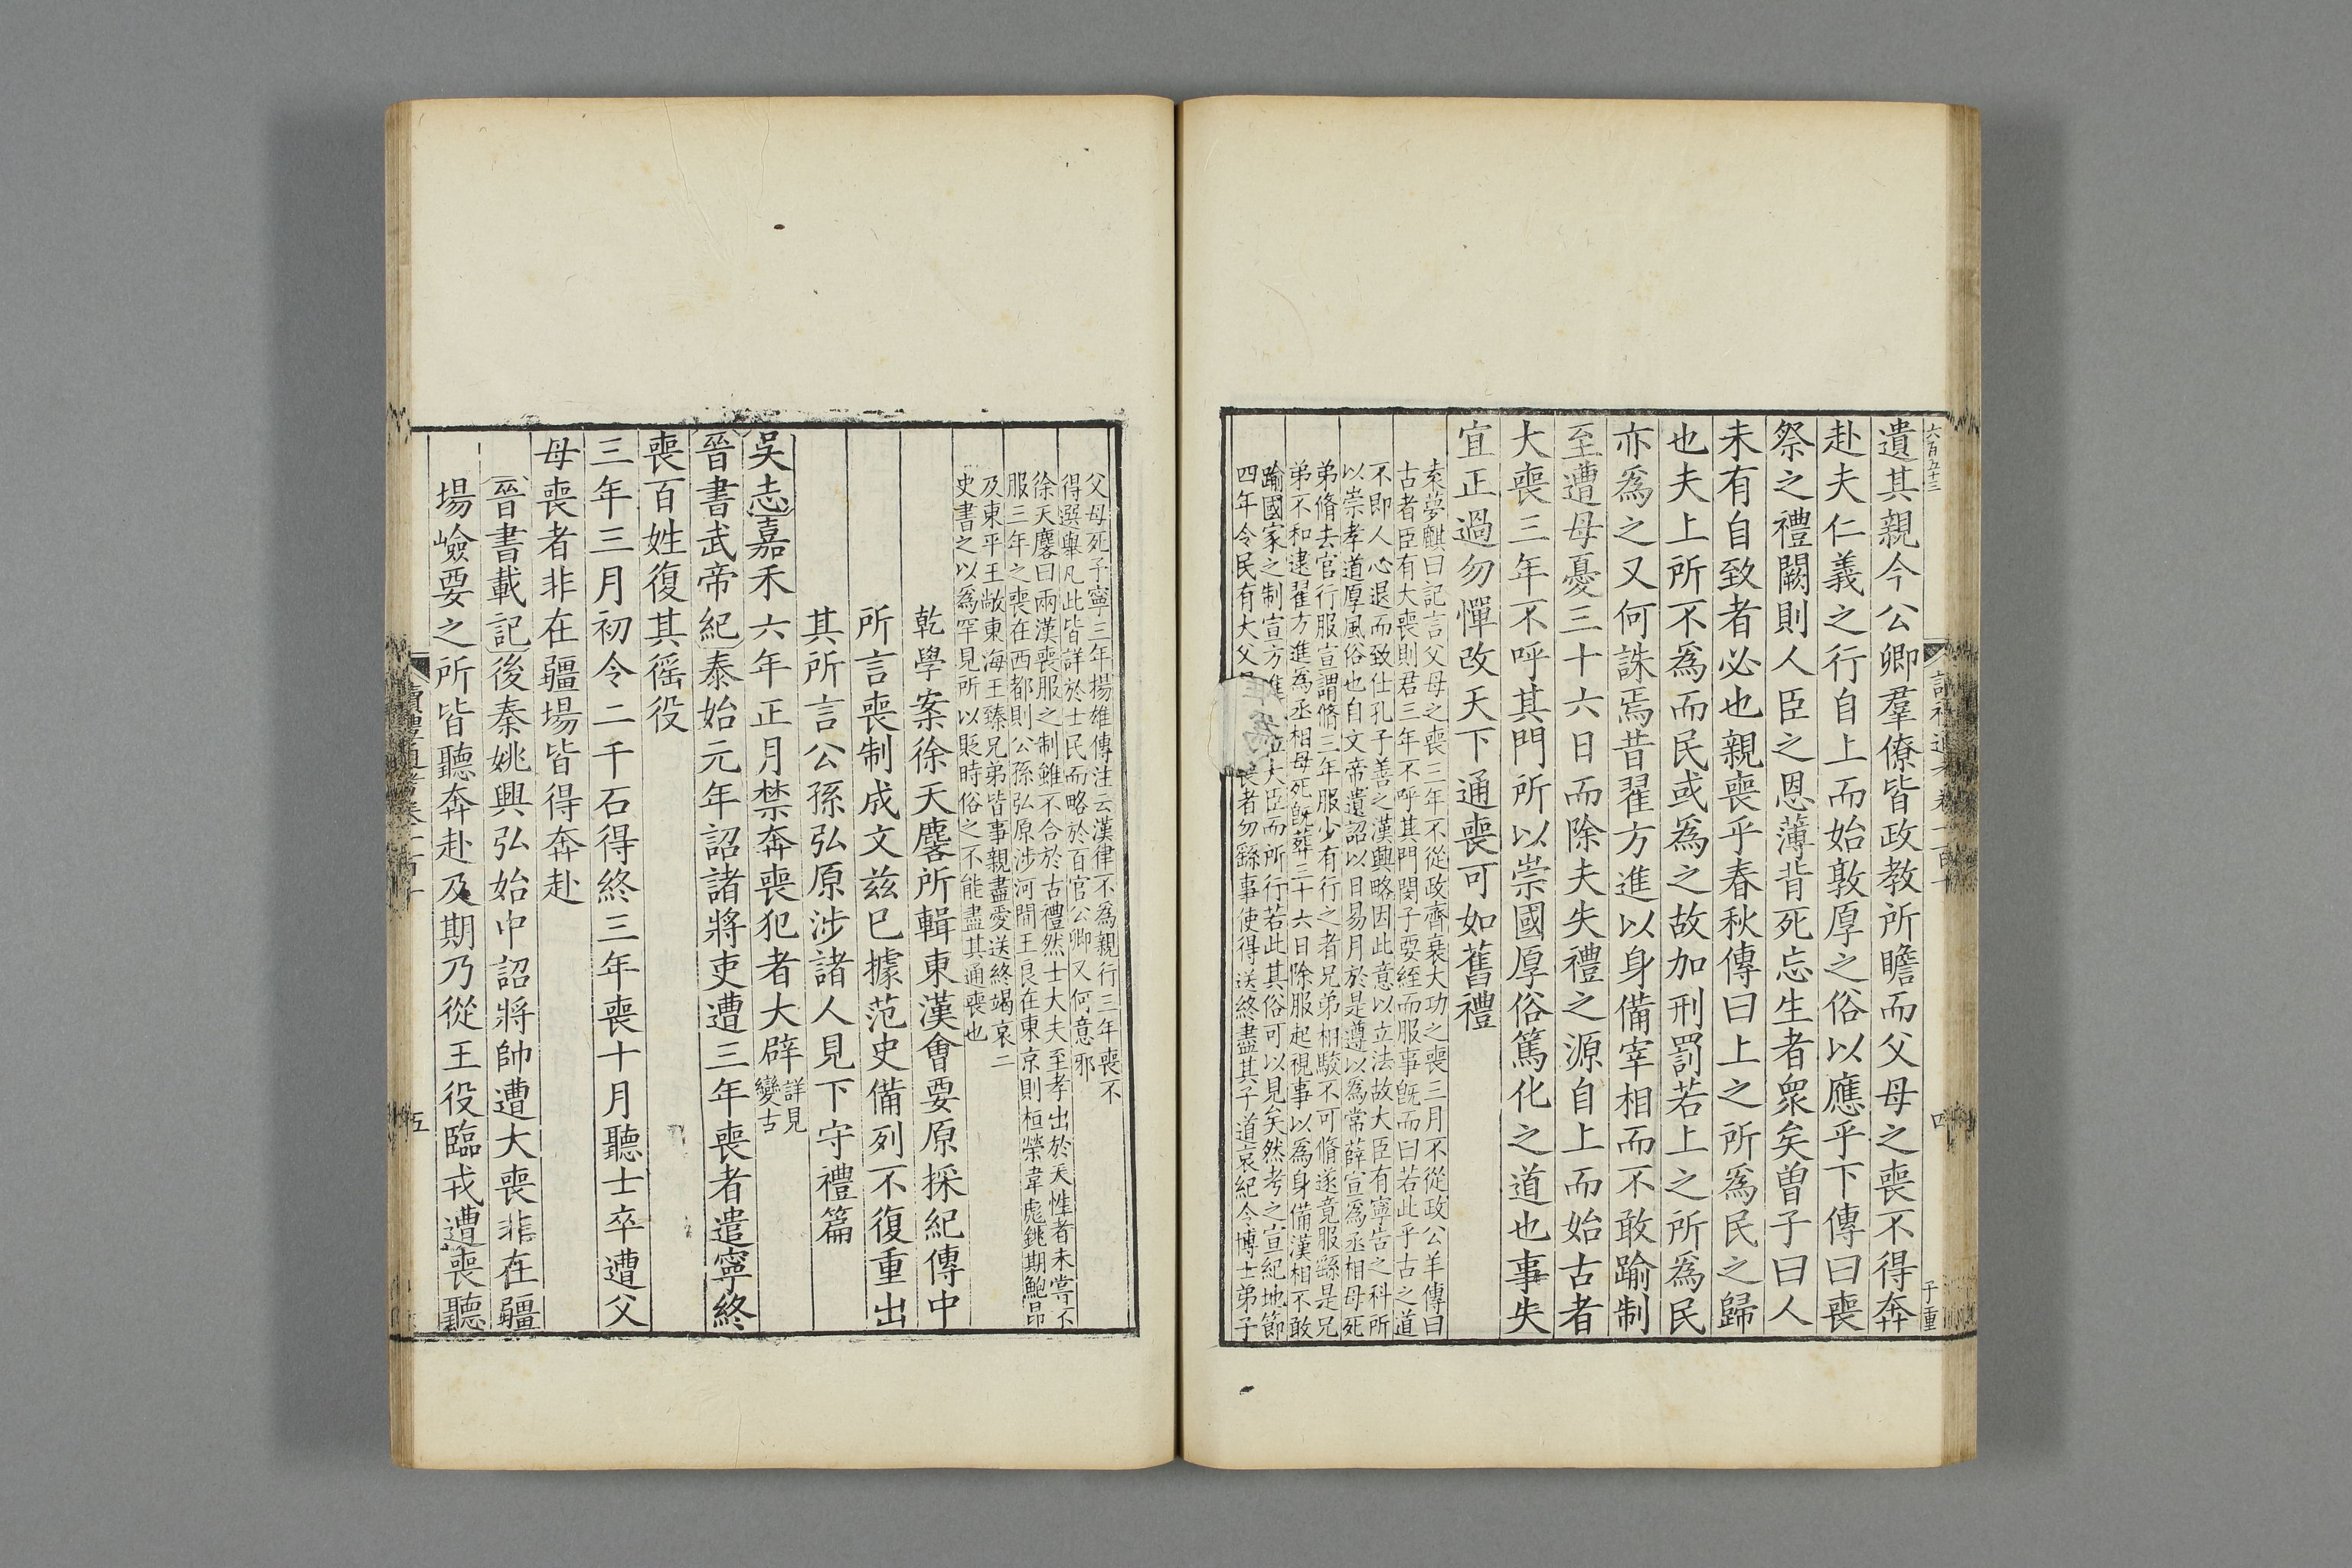 六百五十三
遺其親今公卿羣僚皆政教所瞻而父母之喪不得奔
赴夫仁義之行自上而始敦厚之俗以應乎下傳曰喪
祭之禮闕則人臣之恩薄背死忘生者衆矣曾子曰人
未有自致者必也親喪乎春秋傳曰上之所爲民之歸
也夫上所不爲而民或爲之故加刑罰若上之所爲民
亦爲之又何誅焉昔翟方進以身備宰相而不敢踰制
至遭母憂三十六日而除夫失禮之源自上而始古者
大喪三年不呼其門所以崇國厚俗篤化之道也事失
宜正過勿憚改天下通喪可如舊禮
束夢麒曰記言父母之喪三年不從政齊衰大功之喪三月不從政公羊傳曰
古者臣有大喪則君三年不呼其門閔子要絰而服事旣而曰若此乎古之道
不即人心退而致仕孔子善之漢興略因此意以立法故大臣有寧告之科所
以崇孝道厚風俗也自文帝遺詔以日易月於是遵以為常薛宣爲丞相母死
弟脩去官行服宣謂脩三年服少有行之者兄弟相駮不可脩遂竟服繇是兄
弟不和逮翟方進爲丞相母死旣葬三十六日除服起視事以爲身備漢相不敢
踰國家之制宣方進位大臣而所行若此其俗可以見矣然考之宣紀地節
四年令民有大父喪者勿繇事使得送終盡其子道哀紀令博士弟子
四
子重
父母死予寧三年揚雄傳注云漢律不爲親行三年喪不
得選舉凡此皆詳於士民而略於百官公卿又何意邪
徐天麐曰兩漢喪服之制雖不合於古禮然士大夫至孝出於天性者未嘗不
服三年之喪在西都則公孫弘原涉河間王良在東京則桓榮韋彪銚期鮑昂
及東平王敞東海王臻兄弟皆事親盡愛送終竭哀二
史書之以爲罕見所以貶時俗之不能盡其通喪也
乾學案徐天麐所輯東漢會要原採紀傳中
所言喪制成文兹巳據范史備列不復重出
其所言公孫弘原涉諸人見下守禮篇
吳志嘉禾六年正月禁奔喪犯者大辟詳見變古
晉書武帝紀泰始元年詔諸將吏遭三年喪者遣寧終
喪百姓復其徭役
三年三月初令二千石得終三年喪十月聽士卒遭父
母喪者非在疆場皆得奔赴
晉書載記後秦姚興弘始中詔將帥遭大喪非在疆
場嶮要之所皆聽奔赴及期乃從王役臨戎遭喪聽
讀禮通考卷一百十
五